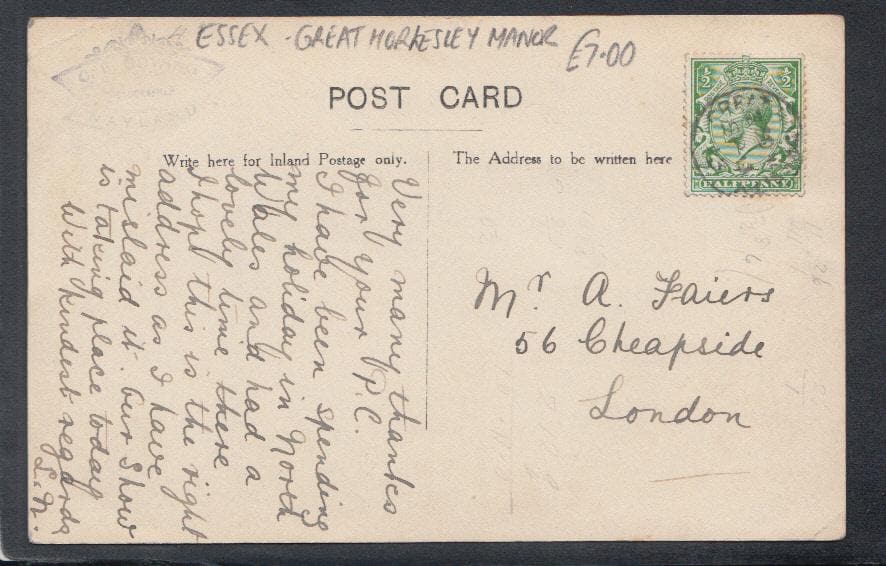 ESSEX - GREAT HORKESLEY MANOR £7.00
POST CARD
Write here for Inland Postage only.
The Address to be written here
½ ½
HALFPENNY
Very many thanks
for your P.C.
I have been spending
my holiday in North
Wales and had a
lovely time there
I hope this is the right
address as I have
mislaid it. Our Show
is taking place today
With kindest regards
L.N.
Mr A. Faiers
56 Cheapside
London